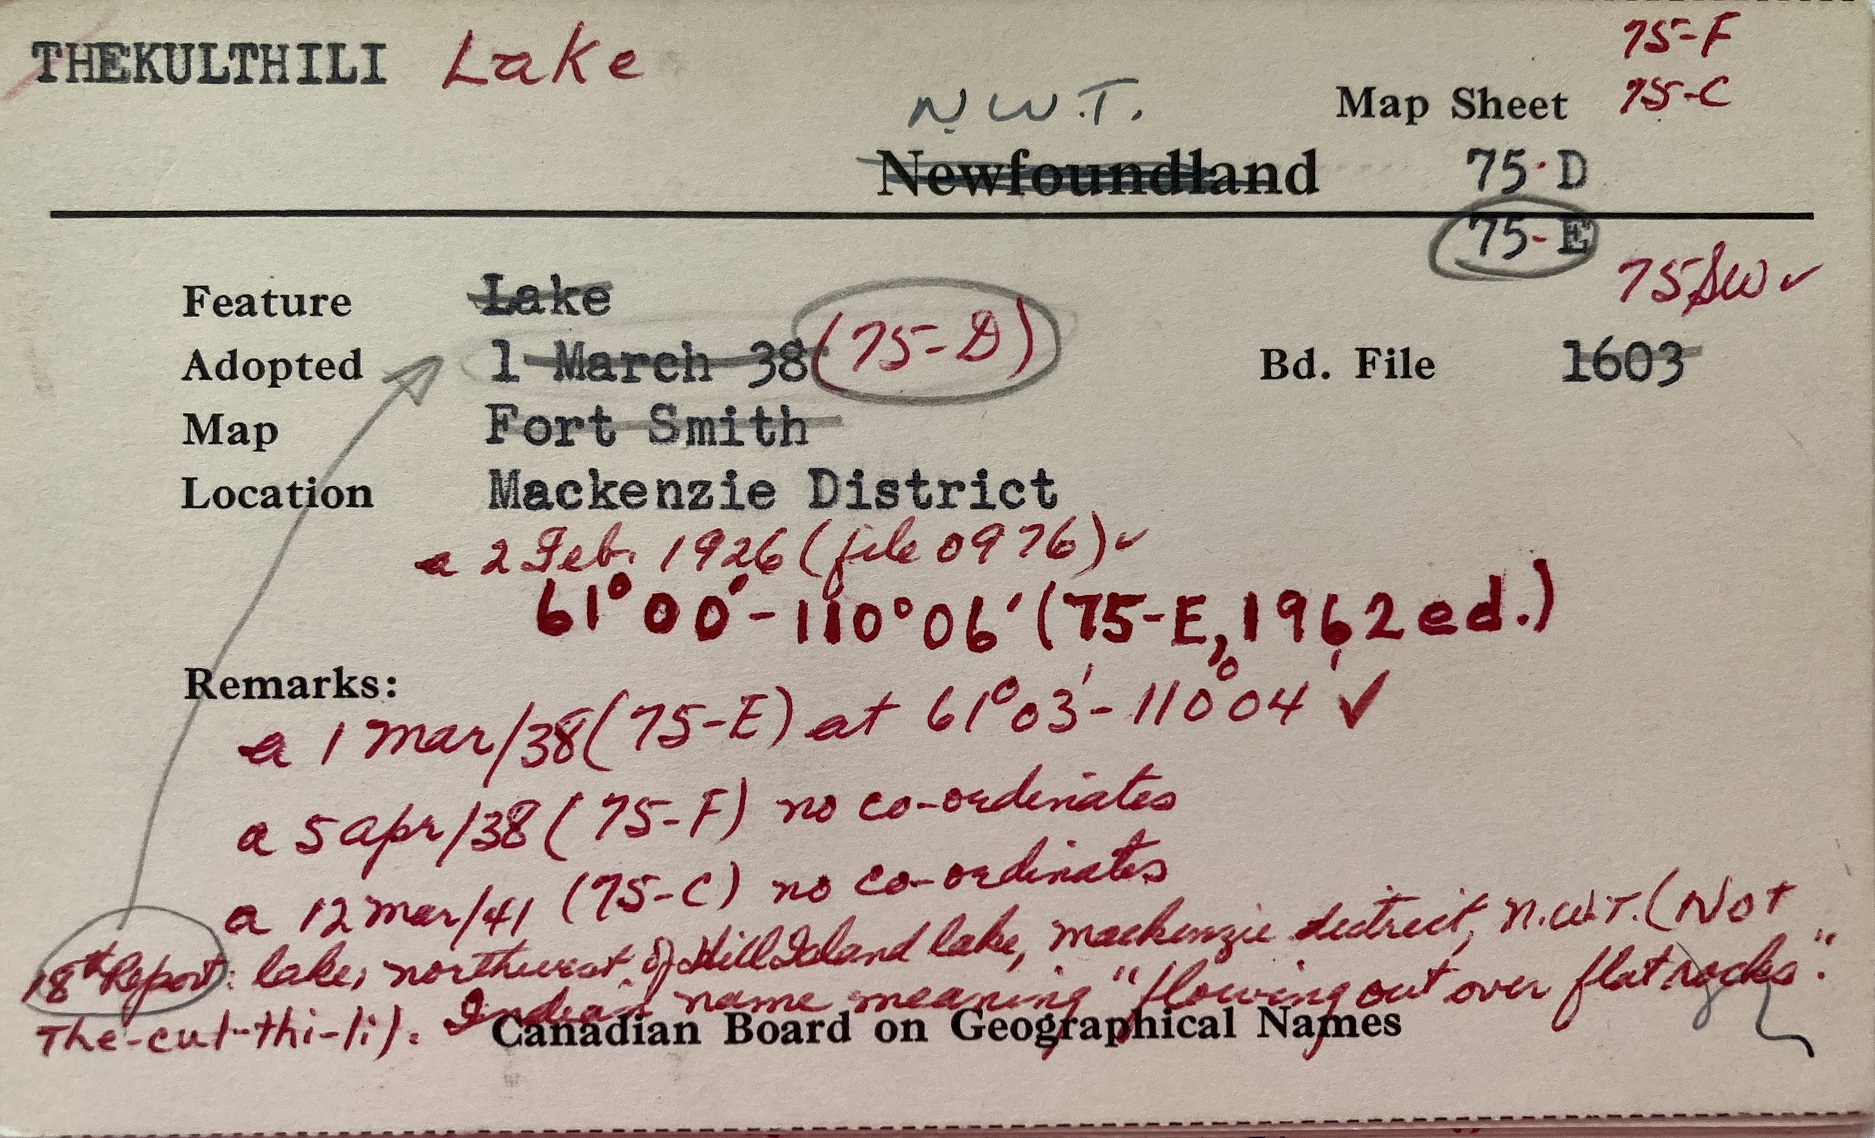 THEKULTHILI Lake
75-F
N.W.T.
Map Sheet 75-C
Newfoundland 75-D
75-E
75SW ✓
Feature Lake
Adopted 1 March 38 (75-D) Bd. File 1603
Map Fort Smith
Location Mackenzie District
a 2 Feb. 1926 (file 0976) ✓
61°00'-110°06' (75-E, 1962 ed.)
Remarks:
a 1 Mar/38 (75-E) at 61°03'-110°04' ✓
a 5 Apr/38 (75-F) no co-ordinates
a 12 Mar/41 (75-C) no co-ordinates
18th Report: lake, northwest of Hill Island lake, Mackenzie district, N.W.T. (Not
The-cul-thi-li). Indian name meaning "flowing out over flat rocks".
Canadian Board on Geographical Names